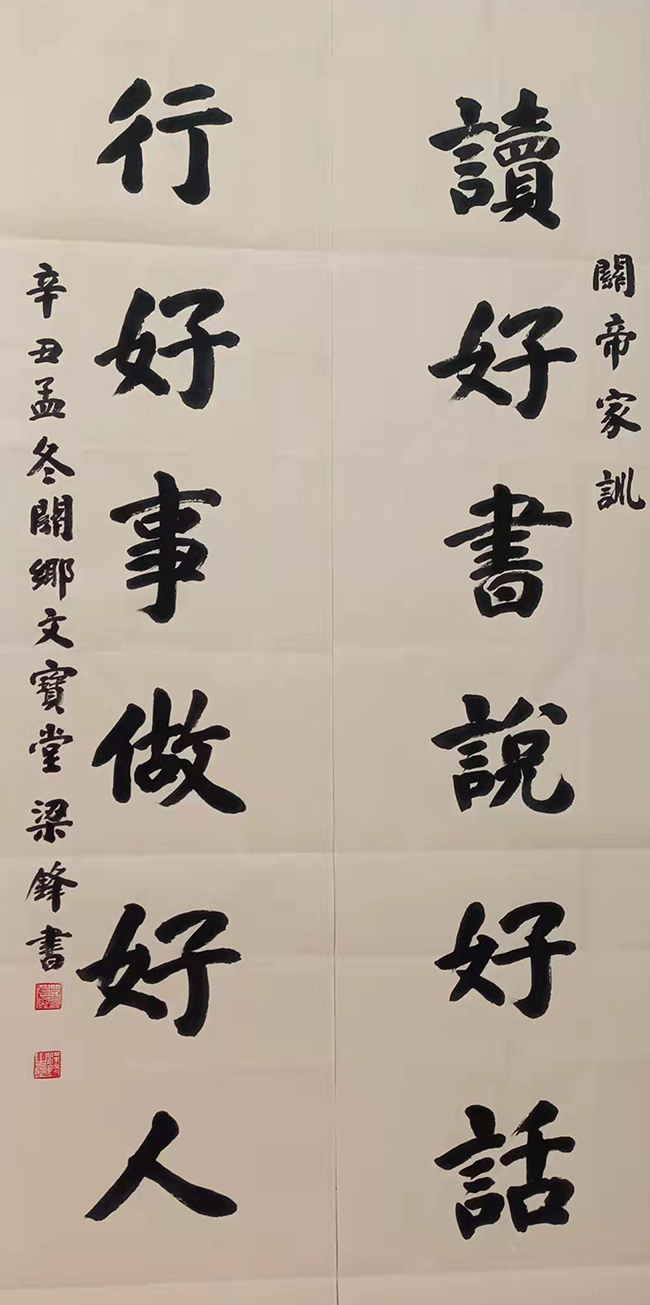 關帝家訓
讀好書說好話
行好事做好人
辛丑孟冬關鄉文寶堂梁鋒書